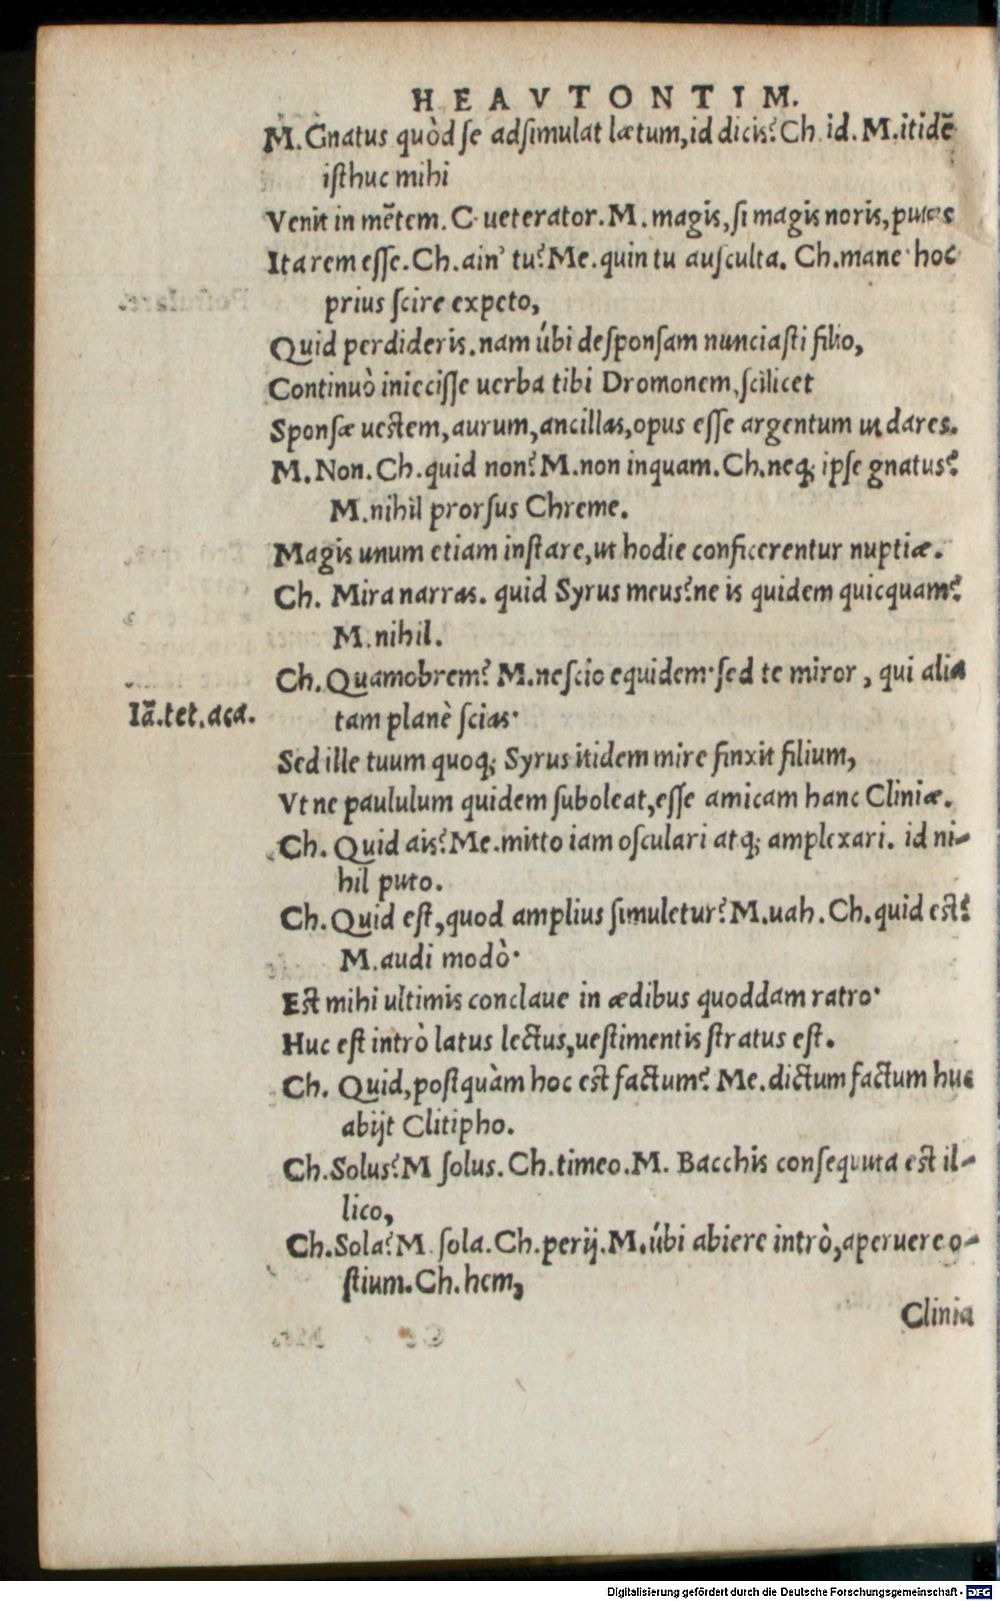 HEAVTONTIM.
M. Gnatus quòd se adsimulat lætum, id dicis? Ch. id. M. itidē
isthuc mihi
Venit in mētem. C. ueterator. M. magis, si magis noris, putes
Ita rem esse. Ch. ain' tu? Me. quin tu ausculta. Ch. mane. hoc
prius scire expeto,
Quid perdideris. nam úbi desponsam nunciasti filio,
Continuò iniecisse uerba tibi Dromonem, scilicet
Sponsæ uestem, aurum, ancillas, opus esse argentum ut dares.
M. Non. Ch. quid non? M. non inquam. Ch. neq; ipse gnatus?
M. nihil prorsus Chreme.
Magis unum etiam instare, ut hodie conficerentur nuptiæ.
Ch. Mira narras. quid Syrus meus? ne is quidem quicquam?
M. nihil.
Ch. Quamobrem? M. nescio equidem. sed te miror, qui alia
Iā. tet. aca.
tam planè scias.
Sed ille tuum quoq; Syrus itidem mire finxit filium,
Vt ne paululum quidem suboleat, esse amicam hanc Cliniæ.
Ch. Quid ais? Me. mitto iam osculari atq; amplexari. id ni-
hil puto.
Ch. Quid est, quod amplius simuletur? M. uah. Ch. quid est?
M. audi modò.
Est mihi ultimis conclaue in ædibus quoddam ratro.
Huc est intrò latus lectus, uestimentis stratus est.
Ch. Quid, postquàm hoc est factum? Me. dictum factum huc
abijt Clitipho.
Ch. Solus? M solus. Ch. timeo. M. Bacchis consequuta est il-
lico,
Ch. Sola? M. sola. Ch. perij. M. úbi abiere intrò, aperuere o-
stium. Ch. hem,
Clinia
Digitalisierung gefördert durch die Deutsche Forschungsgemeinschaft - DFG